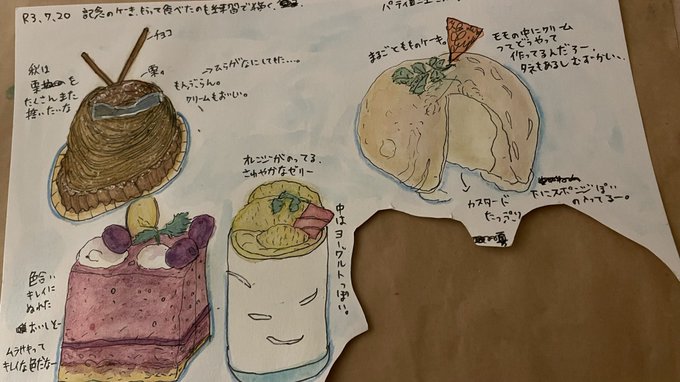 R3.7.20 記念のケーキ。もらって食べたのも練習で描く。
パティ
チョコ
秋は
栗
たくさんまた
拾いたいな
栗。
→ひらがなにしてもた...。
もんぶらん。
クリームもおいしい。
まるごとももケーキ。
モモの中にクリーム
つてどうやって
作ってるんだろー。
タネもあるしむずかしい、
オレンジがのってる、
さわやかなゼリー
中はヨーグルトっぽい。
カスタード
たっぷり
下にスポンジっぽい
のってるー。
色合い
キレイに
ぬれた
おいしそー
ムラサキって
キレイな色だなー